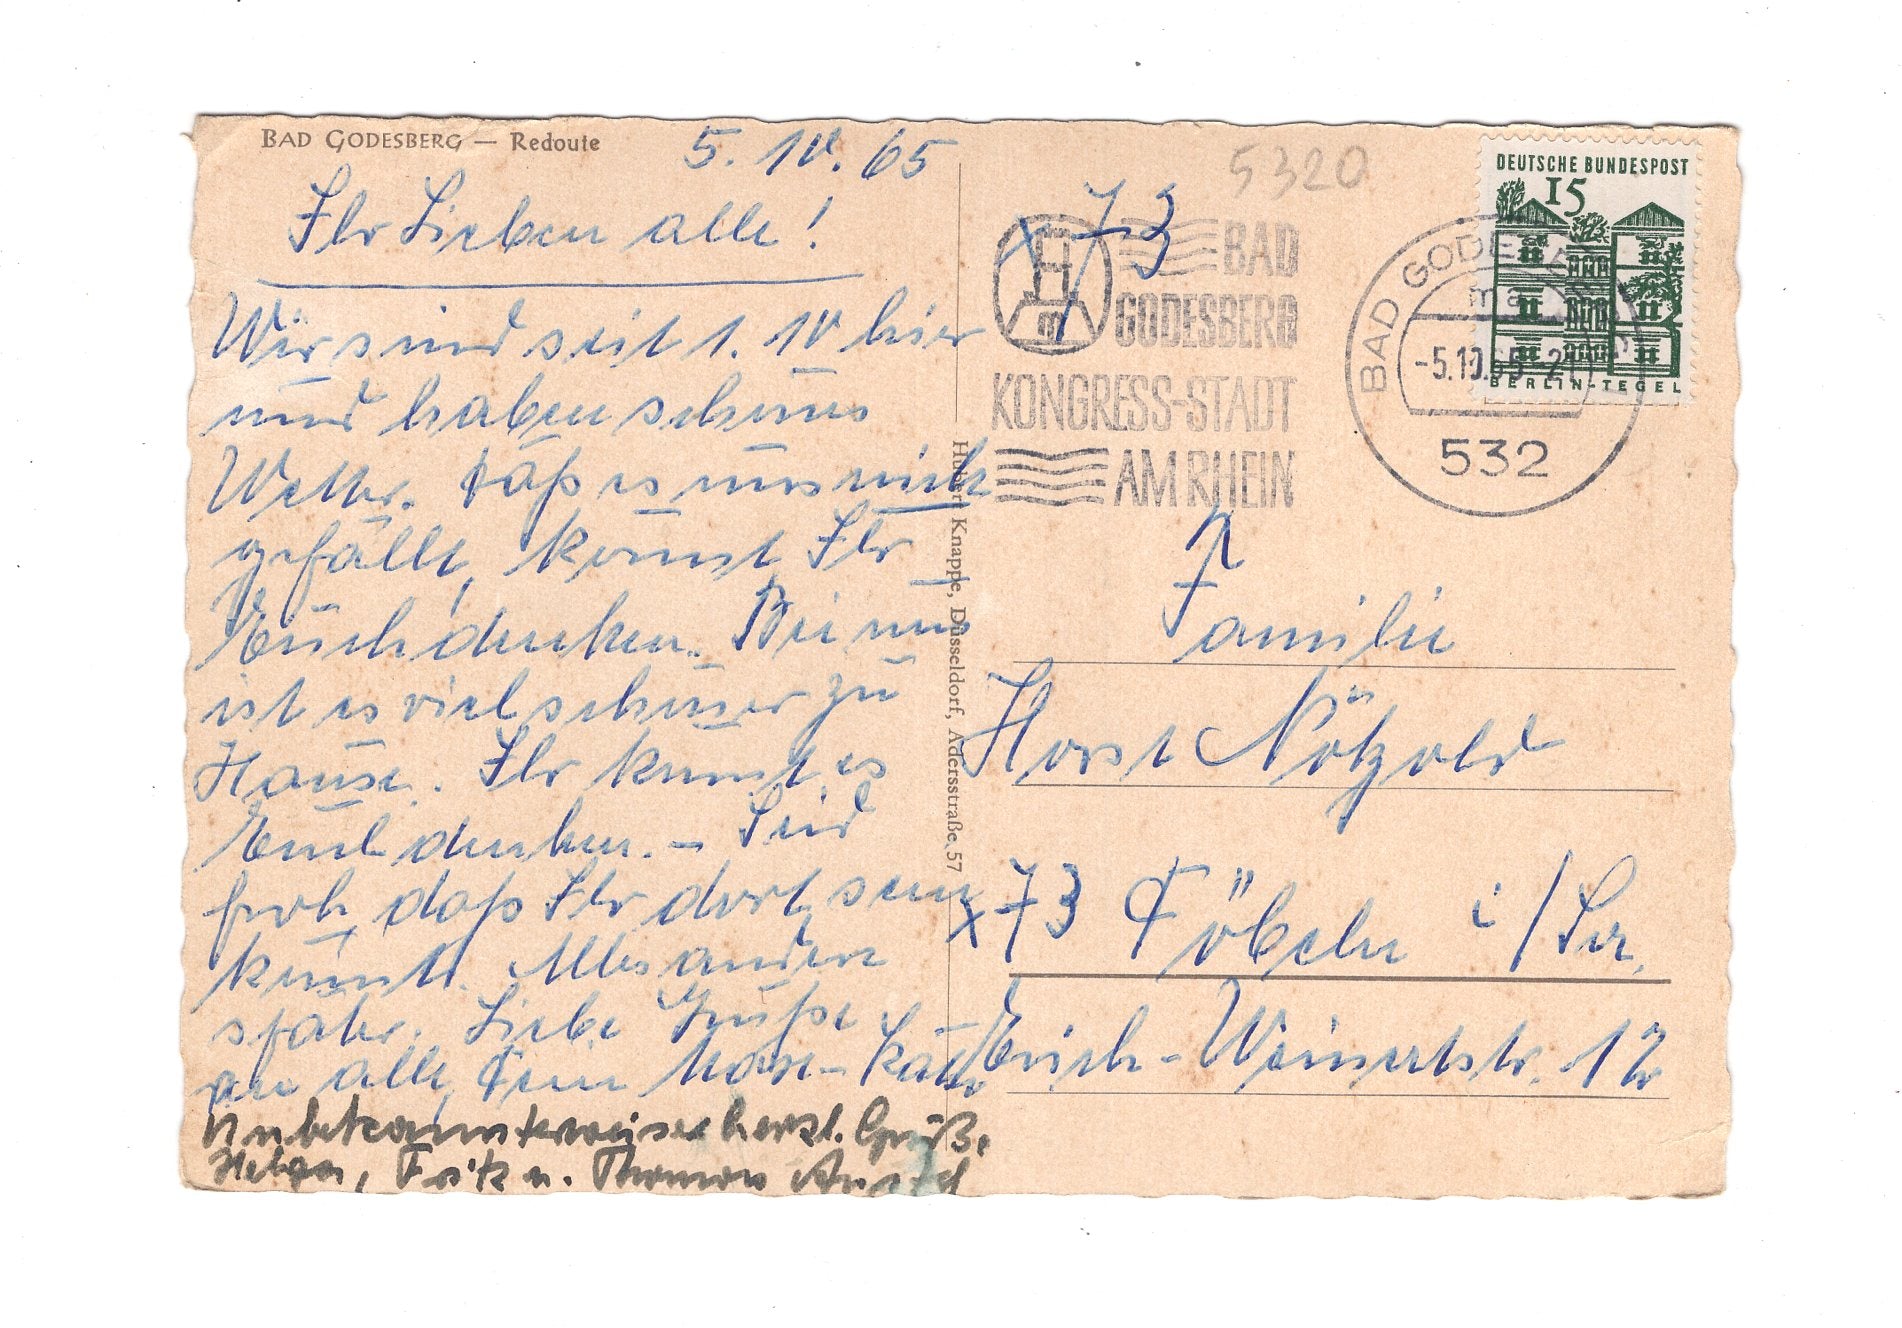 BAD GODESBERG — Redoute
5. 10. 65
Ihr Lieben alle!
Wir sind seit 1. 10 hier
und haben schönes
Wetter. Daß es uns
gefällt, könnt Ihr
Euch denken. Bei uns
ist es viel schöner zu
Hause. Ihr könnt es
Euch denken. - Seid
froh, daß Ihr dort sein
könnt. Alles andere
später. Liebe Grüße
an alle, Käte
Unbekannterweise herzl. Grüße
Helga, Fritz u. Thomas
Hubert Knappe, Düsseldorf, Adersstraße 57
5320
x 73
BAD
GODESBERG
KONGRESS-STADT
AM RHEIN
BAD GODESBERG
-5.10.65-21
532
DEUTSCHE BUNDESPOST
15
BERLIN-TEGEL
Familie
Horst Nötzold
x 73 Döbeln i/Sa.
Erich-Weinertstr. 12